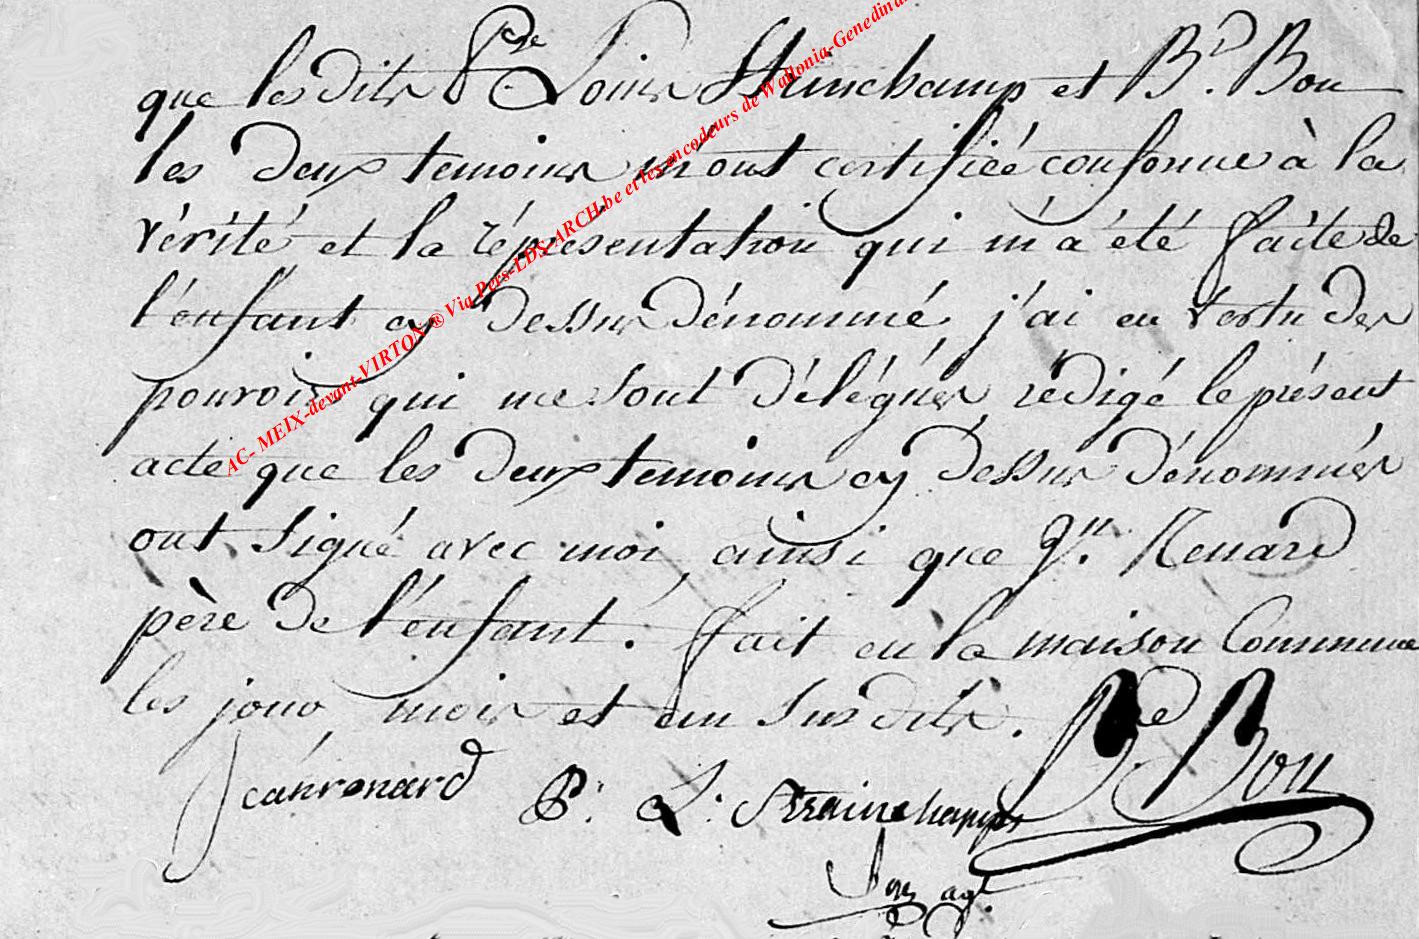 que les dits Pre Louis Stinchamp et Bd. Bon
les deux temoins m'ont certifiée conforme à la
vérité et la réprésentation qui m'a été faite de
l'enfant cy dessus dénommé, j'ai en vertu des
pouvoirs qui me sont délégués, rédigé le présent
acte que les deux temoins cy dessus dénommés
ont signé avec moi, ainsi que Jn. Renard
père de l'enfant. fait en la maison Commune
les jour, mois et an sus dits.
Jean renard
Pr. L.
Bd. Bon
agt.
AC- MEIX-devant-VIRTON ® Via Pers-LDS-ARCH.be et les encodeurs de Wallonia-Genedinan